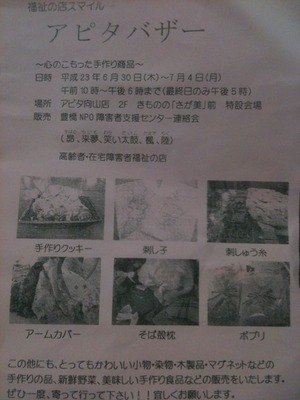 福祉の店スマイル
アピタバザー
～心のこもった手作り商品～
日時 平成23年6月30日(木)～7月4日(月)
午前10時～午後6時まで(最終日のみ午後5時)
場所 アピタ向山店 2F きものの「さが美」前 特設会場
販売 豊橋NPO障害者支援センター連絡会
来夢、笑い太鼓、
高齢者・在宅障害者福祉の店
手作りクッキー
刺し子
刺しゅう糸
アームカバー
そば殻枕
ポプリ
この他にも、とってもかわいい小物・染物・木製品・マグネットなどの
手作りの品、新鮮野菜、美味しい手作り食品などの販売をいたします。
ぜひ一度、寄って行って下さい！！宜しくお願いします。